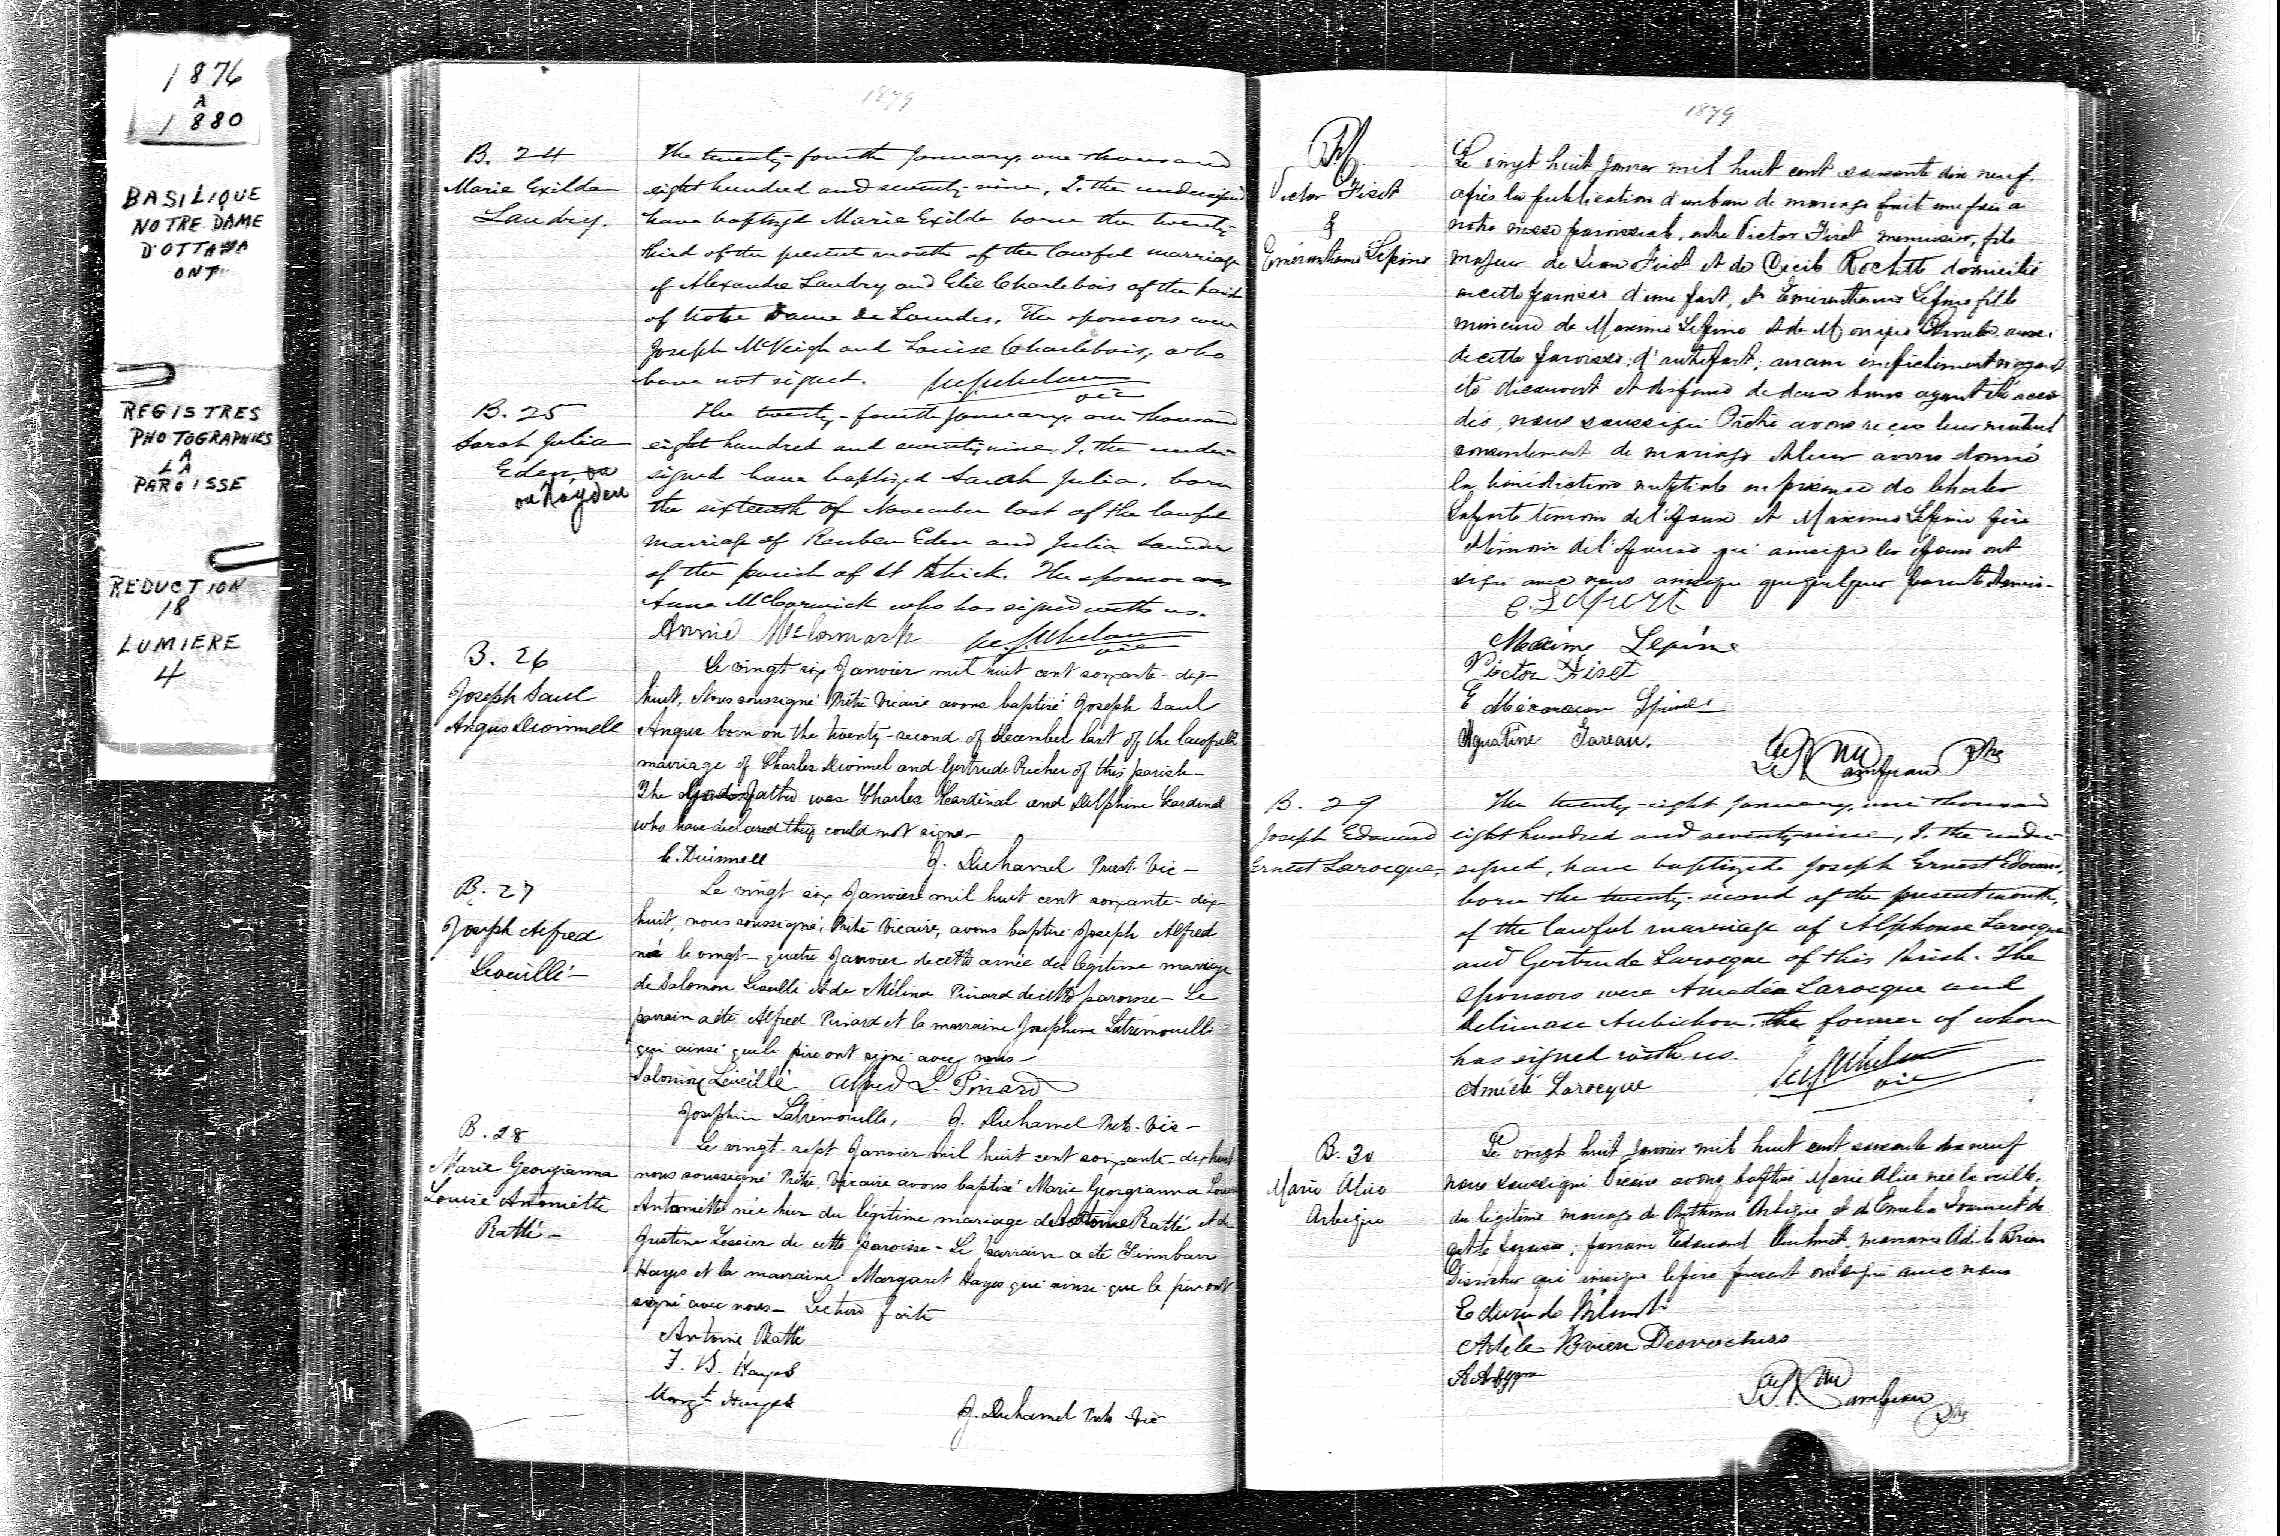 1876
A
1880
BASILIQUE
NOTRE DAME
D'OTTAWA
ONT
REGISTRES
PHOTOGRAPHIES
A
LA
PAROISSE
REDUCTION
18
LUMIERE
4
1879
B. 24
Marie Exilda
Landry.
The twenty-fourth January, one thousand
eight hundred and seventy-nine, I, the undersigned
have baptized Marie Exilda born the twenty
third of the present month of the lawful marriage
of Alexandre Landry and Elie Charlebois of the parish
of Notre Dame de Lourdes. The sponsors were
Joseph McVeigh and Louise Charlebois, who
have not signed.
vic
B. 25
Sarah Julia
Eden, ou
ou Hayden
The twenty-fourth January, one thousand
eight hundred and seventy nine, I, the under-
signed have baptized Sarah Julia, born
the sixteenth of November last of the lawful
marriage of Reuben Eden and Julia
of the parish of St Patrick. The sponsor was
Anna McCormick who has signed with us.
Annie McCormack
vic
B. 26
Joseph Saul
Angus Dwinnell
Le vingt six Janvier mil huit cent soixante-dix-
huit, Nous soussigné Prêtre Vicaire avons baptisé Joseph Saul
Angus born on the twenty-second of december last of the lawfull
marriage of Charles Dwinnel and Gertrude Richer of this parish-
The Godfather was Charles Cardinal and Delphine Cardinal
who have declared they could not signe-
C. Dwinnell J. Duhamel Priest Vic-
B. 27
Joseph Alfred
Leveillé-
Le vingt six Janvier mil huit cent soixante-dix-
huit, nous soussigné, Prêtre Vicaire, avons baptisé Joseph Alfred
né le vingt-quatre Janvier de cette année du légitime mariage
de Salomon Leveillé et de Mélina Pinard de cette paroisse- Le
parrain a été Alfred Pinard et la marraine Josephine Latremouille
qui ainsi que le père ont signé avec nous-
Salomon Leveillé Alfred L. Pinard
Josephin Latremouille, J. Duhamel Ptre. Vic-
B. 28
Marie Georgianna
Louise Antoinette
Ratté-
Le vingt-sept Janvier mil huit cent soixante-dix huit
nous soussigné Prêtre Vicaire avons baptisé Marie Georgianna Louise
Antoinette née hier du légitime mariage de Antoine Ratté et de
Justine Lessier de cette paroisse- Le parrain a été Finnbarr
Hayes et la marraine Margaret Hayes qui ainsi que le père ont
signé avec nous- Lecture faite
Antoine Ratté
F. B. Hayes
Margt Hayes
J. Duhamel Ptre Vic
1879
M.
Victor Fiset
&
Emérantienne Lépine
Le vingt huit Janvier mil huit cent soixante dix neuf.
après la publication d'un ban de mariage fait une fois a
notre messe paroissiale, entre Victor Fiset menuisier, fils
majeur de Léon Fiset et de Cécile Rochette domicilié
en cette paroisse d'une part, et Emérantienne Lépine fille
mineure de Maxime Lépine et de aussi
de cette paroisse, d'autre part; aucun empêchement n'ayant
été découvert et dispense de deux bans ayant été accor
dée, nous soussigné Prêtre avons reçu leur mutuel
consentement de mariage et leur avons donné
la bénédiction nuptiale en présence de Charles
Laporte témoin de l'époux et Maxime Lépine père
et témoin de l'épouse qui ainsi que les époux ont
signé avec nous ainsi que quelques parents & amis.
Maxime Lepine
Victor Fiset
Agustine Gareau.
Ptre
B. 29
Joseph Edouard
Ernest Larocque,
The twenty-eight January, one thousand
eight hundred and seventy nine, I, the under-
signed, have baptized Joseph Ernest Edouard,
born the twenty-second of the present month,
of the lawful marriage of Alphonse Larocque
and Gertrude Larocque of this Parish. The
sponsors were Amadée Larocque and
Delimase Aubichon. The former of whom
has signed with us.
Amédé Larocque
vic
B. 30
Marie Alice
Arbique
Le vingt huit Janvier mil huit cent soixante dix neuf
nous soussigné Vicaire avons baptisé Marie Alice née la veille,
du légitime mariage de Anthime Arbique et de Emelie de
cette paroisse, parrain Edouard marraine Adèle Brien
Desrocher qui ainsi que le père présent ont signé avec nous
Adèle Brien Desrochers
Ptre